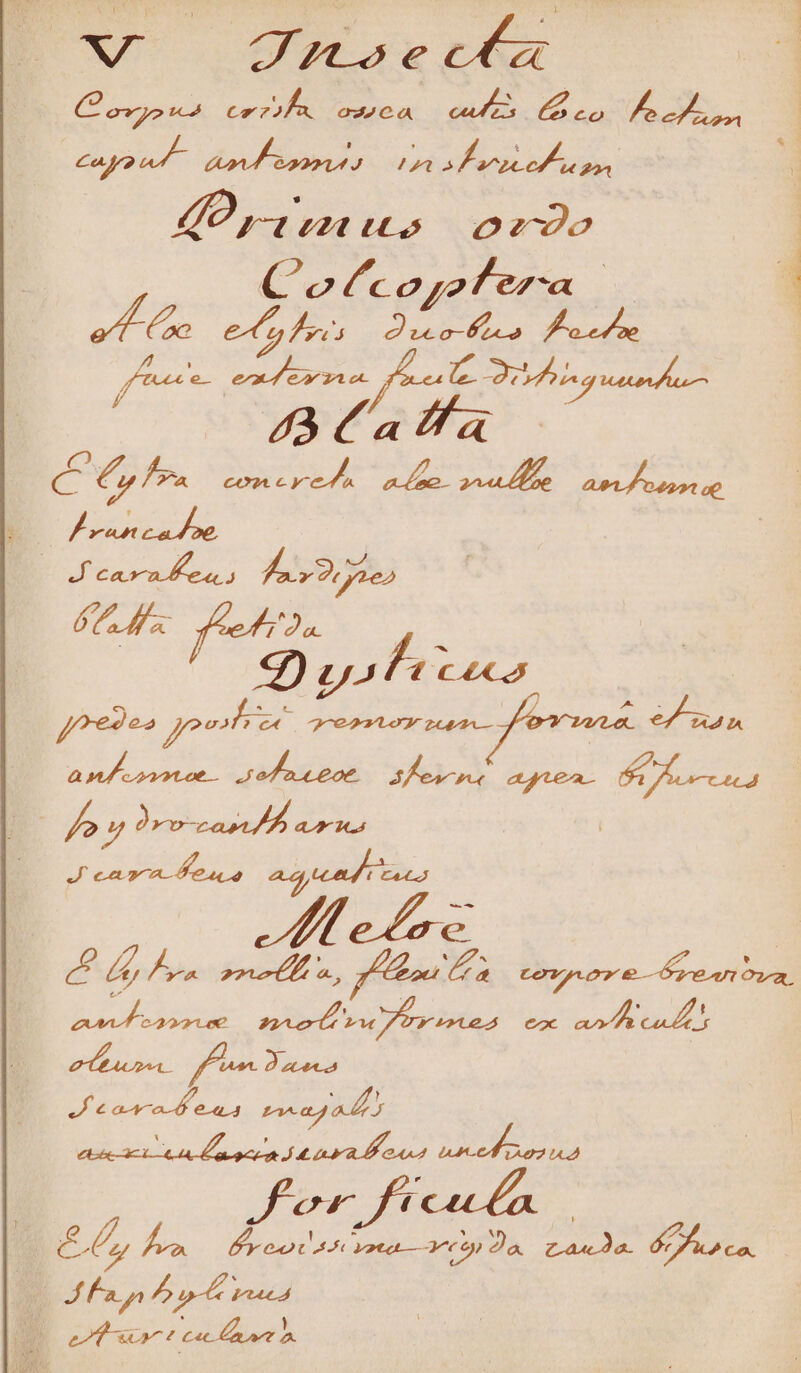 V Insecta
Corpus crista ossea cutis loco tectum
caput antennis instructum
Primus ordo
Coleoptera
Aloe elytris duobus tectoe
facie externa facile distinguuntur
Blatta
Elytra concreta aloe nulloe antennoe
truncatoe
Scarabeus tardipes
blatta foetida
Dysticus
pedes postici remorum formâ et usu
antennoe setaceoe sterni apex bifurcus
hydrocantharus
Scarabeus aquaticus
Meloë
Elytra mollia, flexilia corpore breviora
antennoe moliniformes ex articulis
oleum fundans
Scarabeus majalis
auricularia Scarabeus unctuosus
forficula
Elytra brevissima rigida cauda bifusca
Staphylinus
Auricularia